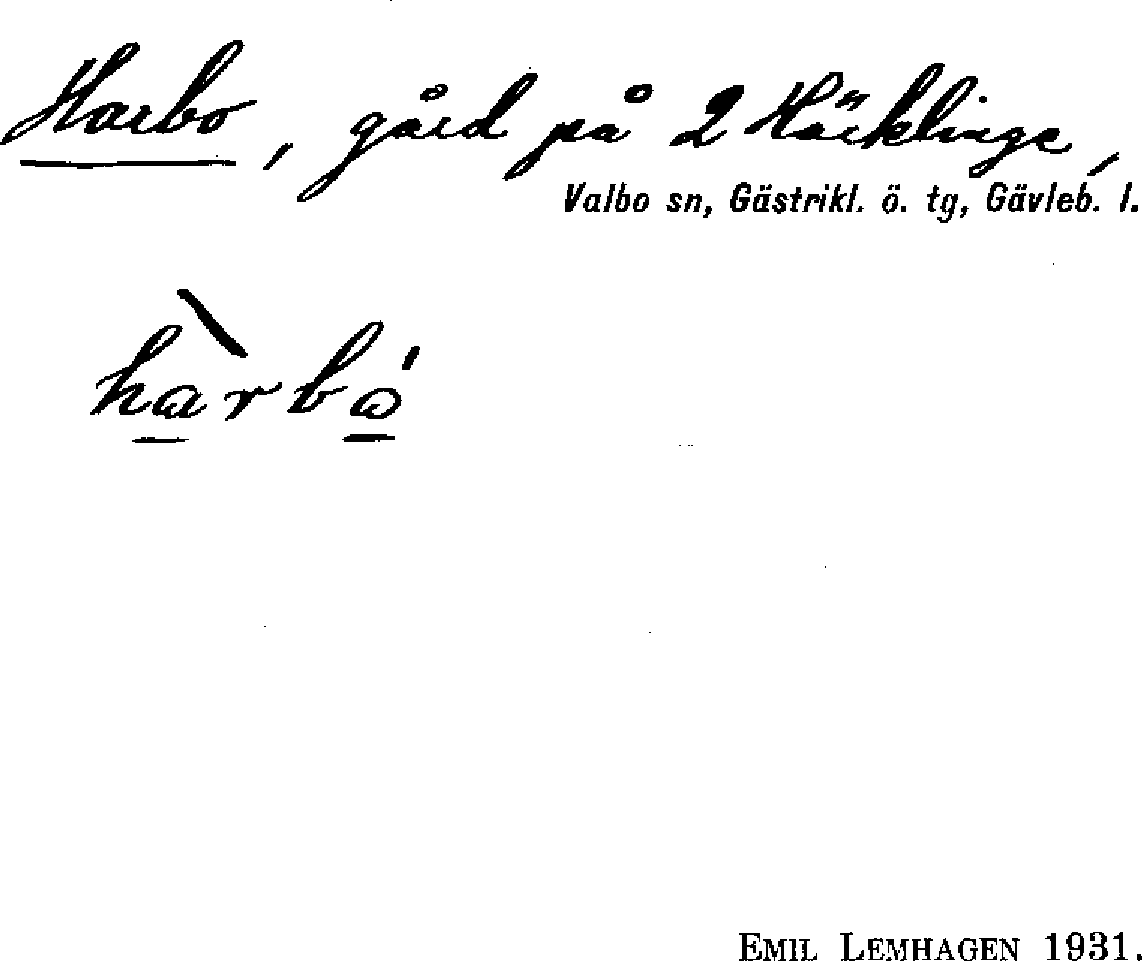 Harbo, gård på 2 Häcklinge,
Valbo sn, Gästrikl. ö. tg, Gävleb. l.
hàrbó
EMIL LEMHAGEN 1931.